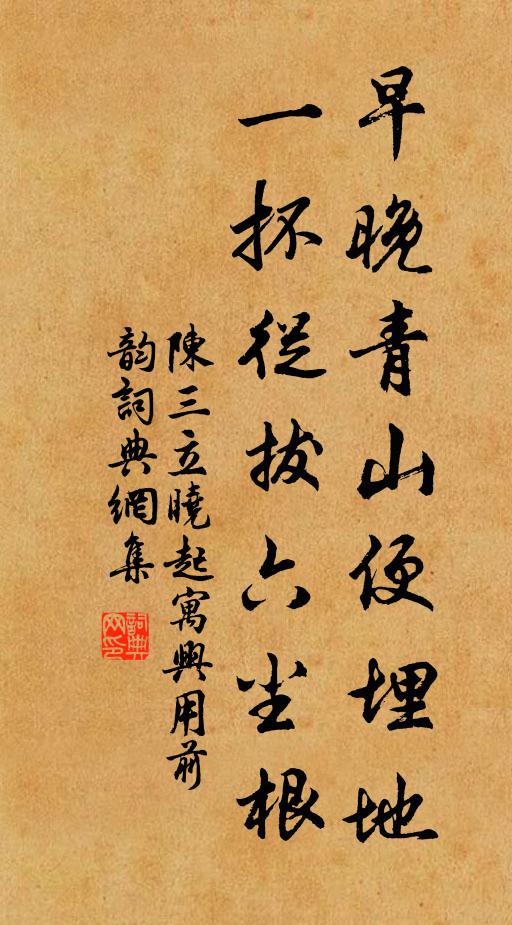 早晚青山便埋地
一抔從拔六尘根
陳三立曉起寓興用前
韵詞典網集
詞典网印